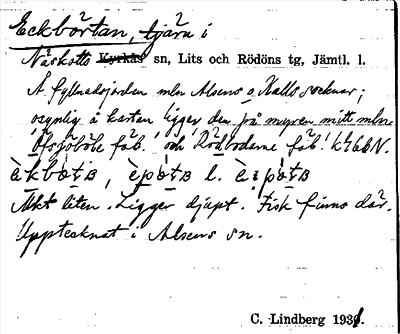 Eckbörtan, tjärn i
Näskotts Kyrkås sn, Lits och Rödöns tg, Jämtl. l.
Å fyllnadsjorden mln Alsens o Kalls socknar;
osynlig å kartan ligger den på myren mitt mln
fäb. och Rödboderne fäb.
Mkt liten. Ligger djupt. Fisk finns där.
Upptecknat i Alsens sn.
C. Lindberg 1931.